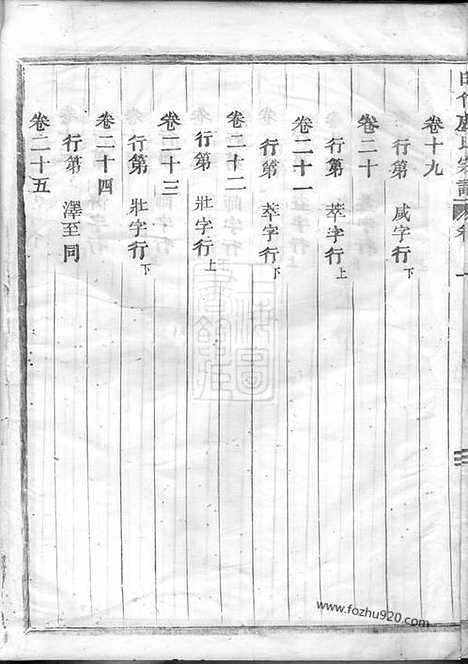 卷十九
行第 咸字行下
卷二十
行第 萃字行上
卷二十一
行第 萃字行下
卷二十二
行第 壯字行上
卷二十三
行第 壯字行下
卷二十四
行第 澤至同
卷二十五
上海圖書館藏
www.fozhu920.com